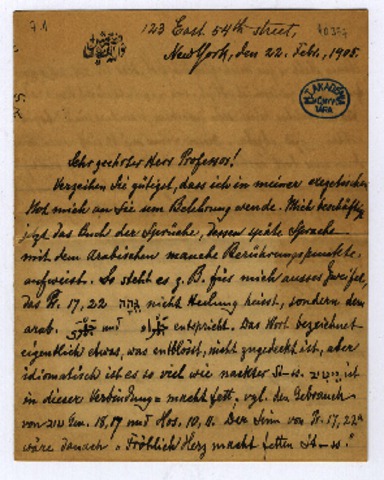 123 East 54th street,
New York, den 22. Febr., 1905.
M. T. AKADEMIA
KÖNYV
TÁRA
Sehr geehrter Herr Professor!
Verzeihen Sie gütigst, dass ich in meiner exegetischen
Not mich an Sie um Belehrung wende. Mich beschäftigt
jetzt das Buch der Sprüche, dessen späte Sprache
mit dem Arabischen manche Berührungspunkte
aufweist. So steht es z. B. für mich ausser Zweifel,
das Pr. 17, 22 גהה nicht Heilung heisst, sondern dem
arab. und entspricht. Das Wort bezeichnet
eigentlich etwas, was entblösst, nicht zugedeckt ist, aber
idiomatisch ist es so viel wie nackter St—s. ייטיב ist
in dieser Verbindung = macht fett, vgl. den Gebrauch
von טוב Gen. 18, 17 und Hos. 10, 11. Der Sinn von Pr. 17, 22a
wäre danach „Fröhlich Herz macht fetten St—ss."